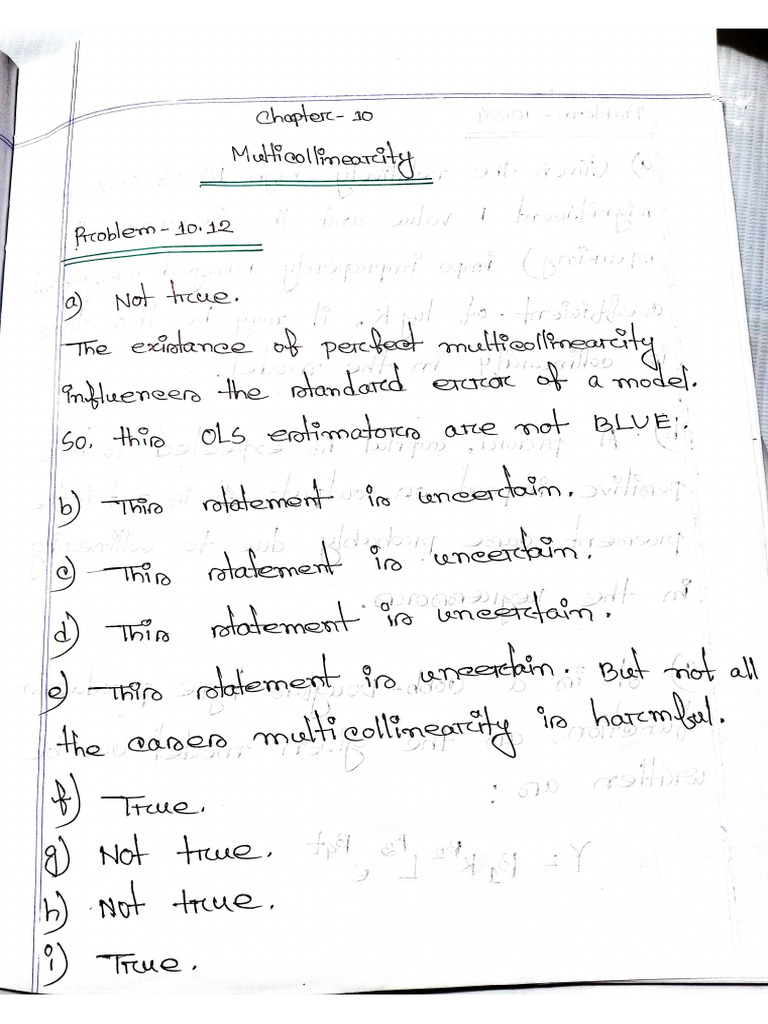 Chapter - 10
Multicollinearity
Problem - 10.12
a) Not true.
The existance of perfect multicollinearity
influences the standard error of a model.
So, this OLS estimators are not BLUE.
b) This statement is uncertain.
c) This statement is uncertain.
d) This statement is uncertain.
e) This statement is uncertain. But not all
the cases multicollinearity is harmful.
f) True.
g) Not true.
h) Not true.
i) True.